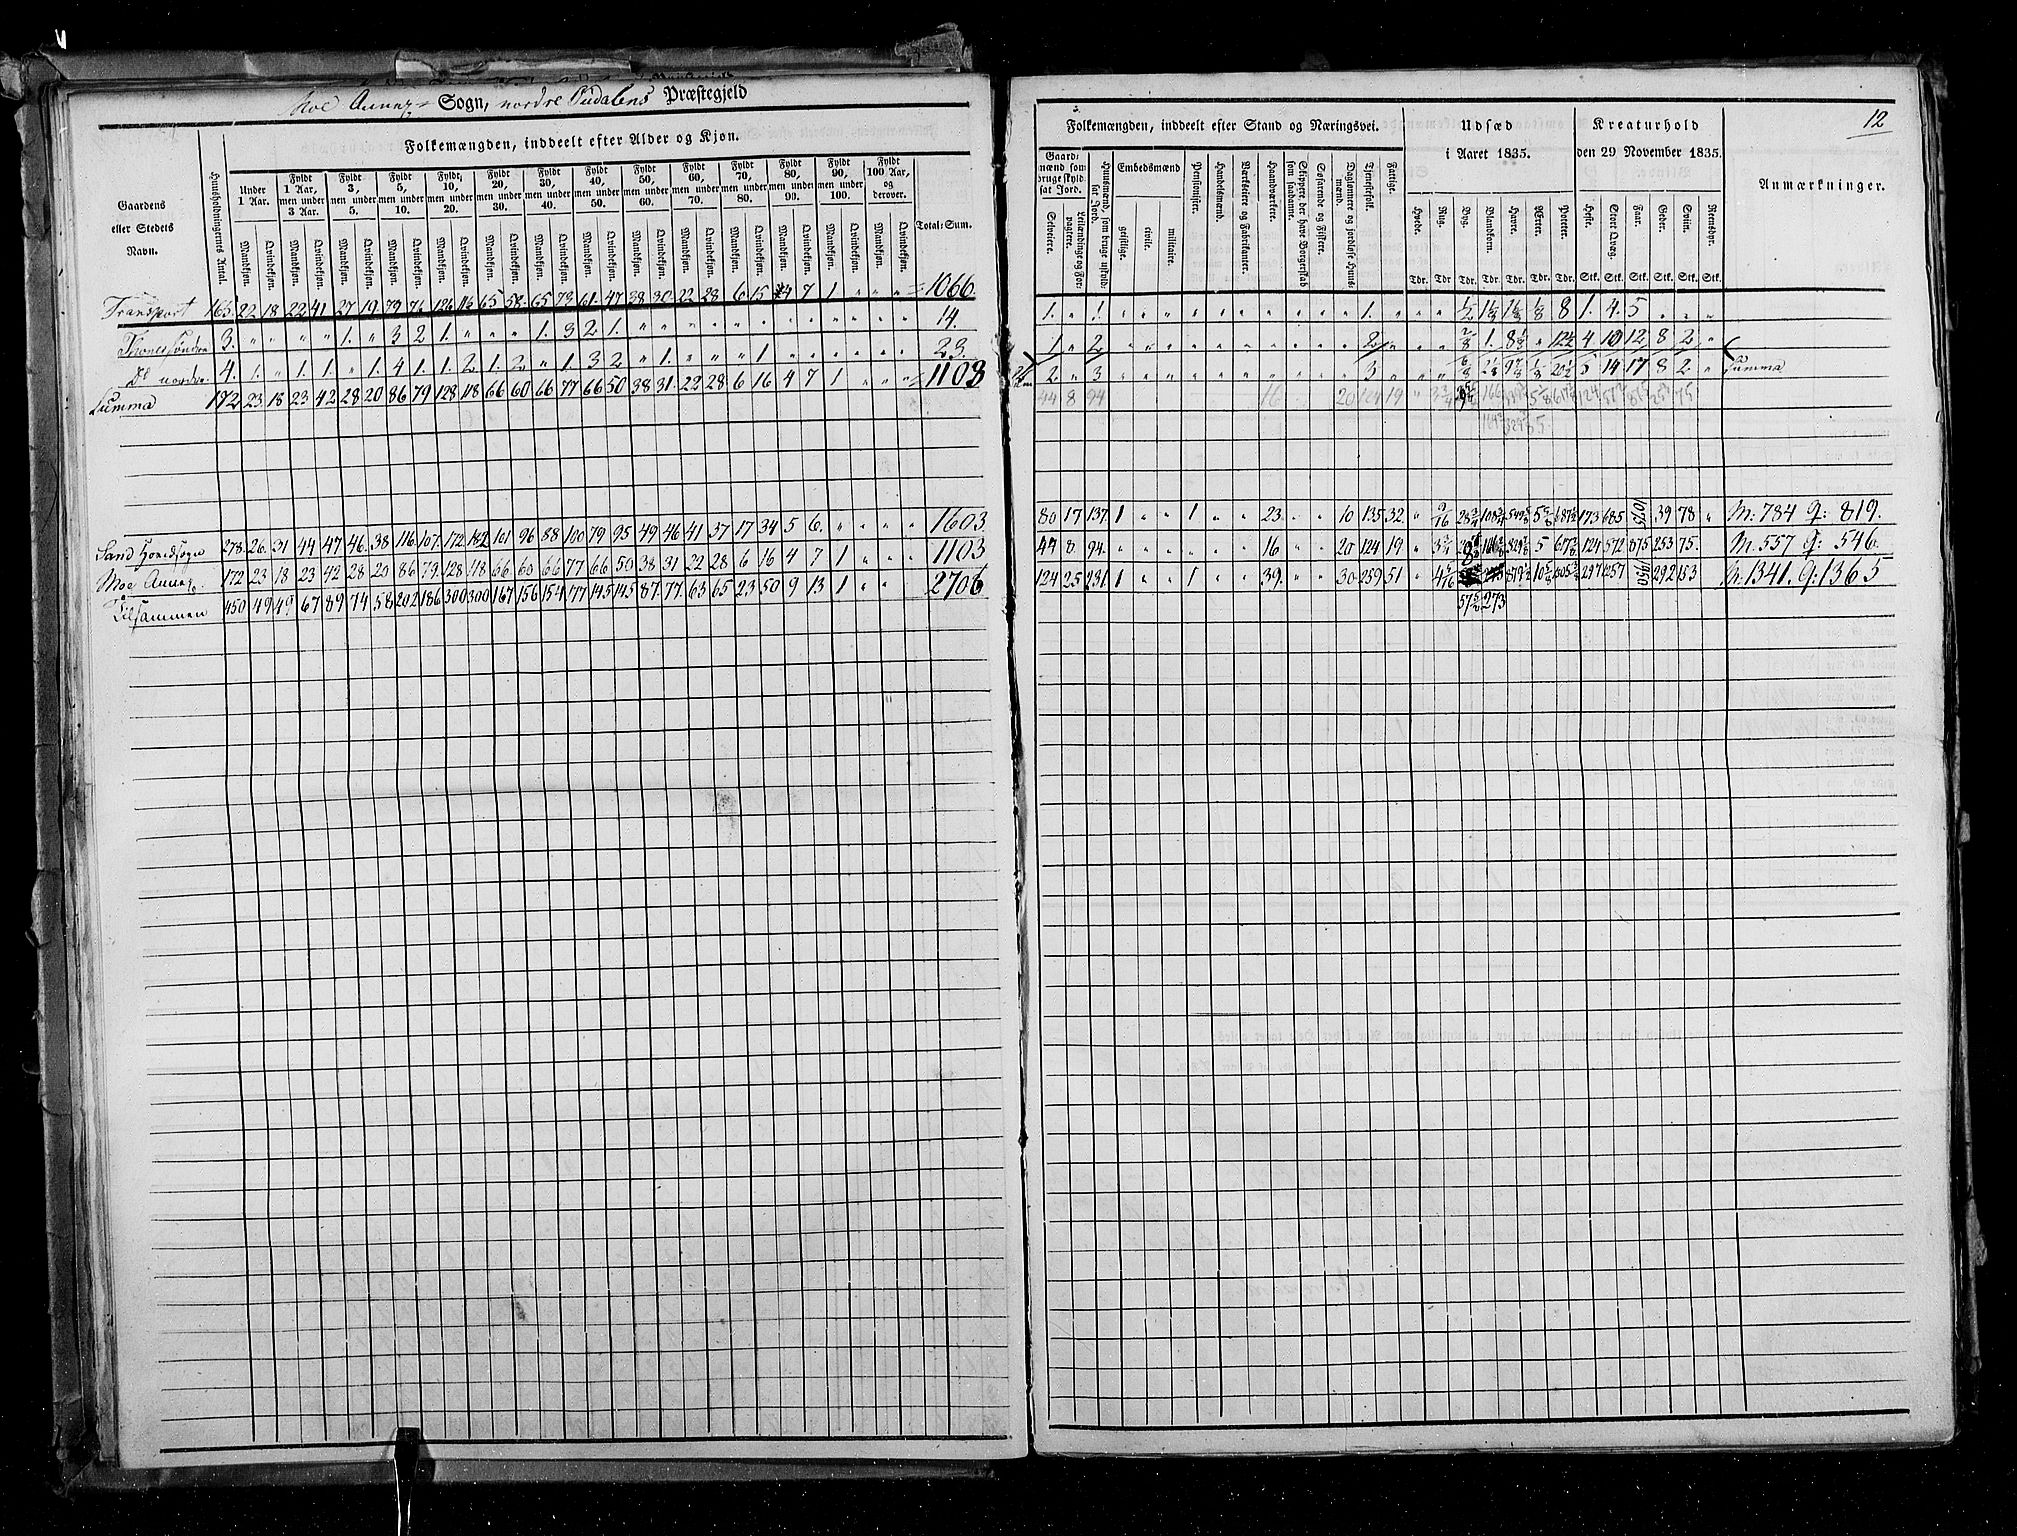 Moe Annex Sogn, nordre Oudalens Præstegjeld
Gaardens eller Stedets Navn.
Huusholdningernes Antal.
Folkemængden, inddeelt efter Alder og Kjøn.
Under 1 Aar.
Fyldt 1 Aar, men under 3 Aar.
Fyldt 3, men under 5.
Fyldt 5, men under 10.
Fyldt 10, men under 20.
Fyldt 20, men under 30.
Fyldt 30, men under 40.
Fyldt 40, men under 50.
Fyldt 50, men under 60.
Fyldt 60, men under 70.
Fyldt 70, men under 80.
Fyldt 80, men under 90.
Fyldt 90, men under 100.
Fyldt 100 Aar, og derover.
Mandkjøn. Qvindekjøn.
Total-Sum.
Transport 165. 22 18 22 41 27 19 79 76 126 116 65 58 65 73 61 47 38 30 22 28 6 15 4 7 1 " " " 1066.
3. " " " " 1. " 3 2 1. " " " 1. 3 2 1. " " " " " " " " " " " " 14.
Dl nordre 4. 1. " 1. 1. " 1. 4 1. 1. 2 1. 2 " 1. 3 2 " 1. " " " 1 " " " " " " 23.
Summa 172 23 18 23 42 28 20 86 79 128 118 66 60 66 77 66 50 38 31. 22 28 6 16 4 7 1 " " " 1103
Sand Hovedsogn 278. 26. 31 44 47 46. 38 116 107. 172 182 101 96 88 100 79 95 49 46 41 37 17 34 5 6. " " " " 1603
Moe Annex. 172 23 18 23 42 28 20 86 79. 128 118 66 60 66 77 66 50 38 31 22 28 6 16 4 7 1 " " " 1103
Tilsammen 450 49 49 67 89 74 58 202 186 300 300 167 156 154 177 145 145 87. 77. 63 65 23 50 9 13 1 " " 2706
12
Folkemængden, inddeelt efter Stand og Næringsvei.
Gaardmænd som bruge skyldsat Jord.
Selveiere.
Leilændinge og Forpagtere.
Huusmænd, som bruge uskyldsat Jord.
Embedsmænd
geistlige.
civile.
militaire.
Pensionister.
Handelsmænd.
Værkseiere og Fabrikanter.
Haandværkere.
Skippere, der have Borgerskab som saadanne.
Søfarende og Fiskere.
Daglønnere og jordløse Huusmænd.
Tjenestefolk.
Fattige.
Udsæd i Aaret 1835.
Hvede. Rug. Byg. Blandkorn. Havre. Erter. Poteter.
Tdr. Tdr Tdr. Tdr. Tdr. Tdr. Tdr.
Kreaturhold den 29 November 1835.
Heste. Stort Qvæg. Faar. Geder. Sviin. Reensdyr.
Stk. Stk. Stk. Stk. Stk. Stk.
Anmærkninger.
1. " 1. " " " " " " " " " " 1. " " " 1/2 8 1. 4. 5 " " "
1 " 2 2 1. 12 1/2 4 10 12 8 2 "
2 " 3 3 14 17 8 2 " Summa
44 8 94 16 20 124 19
80 17 137. 1 " " 1 " " 23. " " 10 135 32. " 9/16 173 685 1075 39 78 " M: 784 Q: 819.
44 8. 94. " " " " " " 16 " " 20 124 19 " 5 124 572 875 253 75. " M. 557 Q: 546.
124 25 231 1 " " 1 " " 39. " " 30 259 51 " 297 1257 1950 292 153 K. 1341. Q: 1365
273